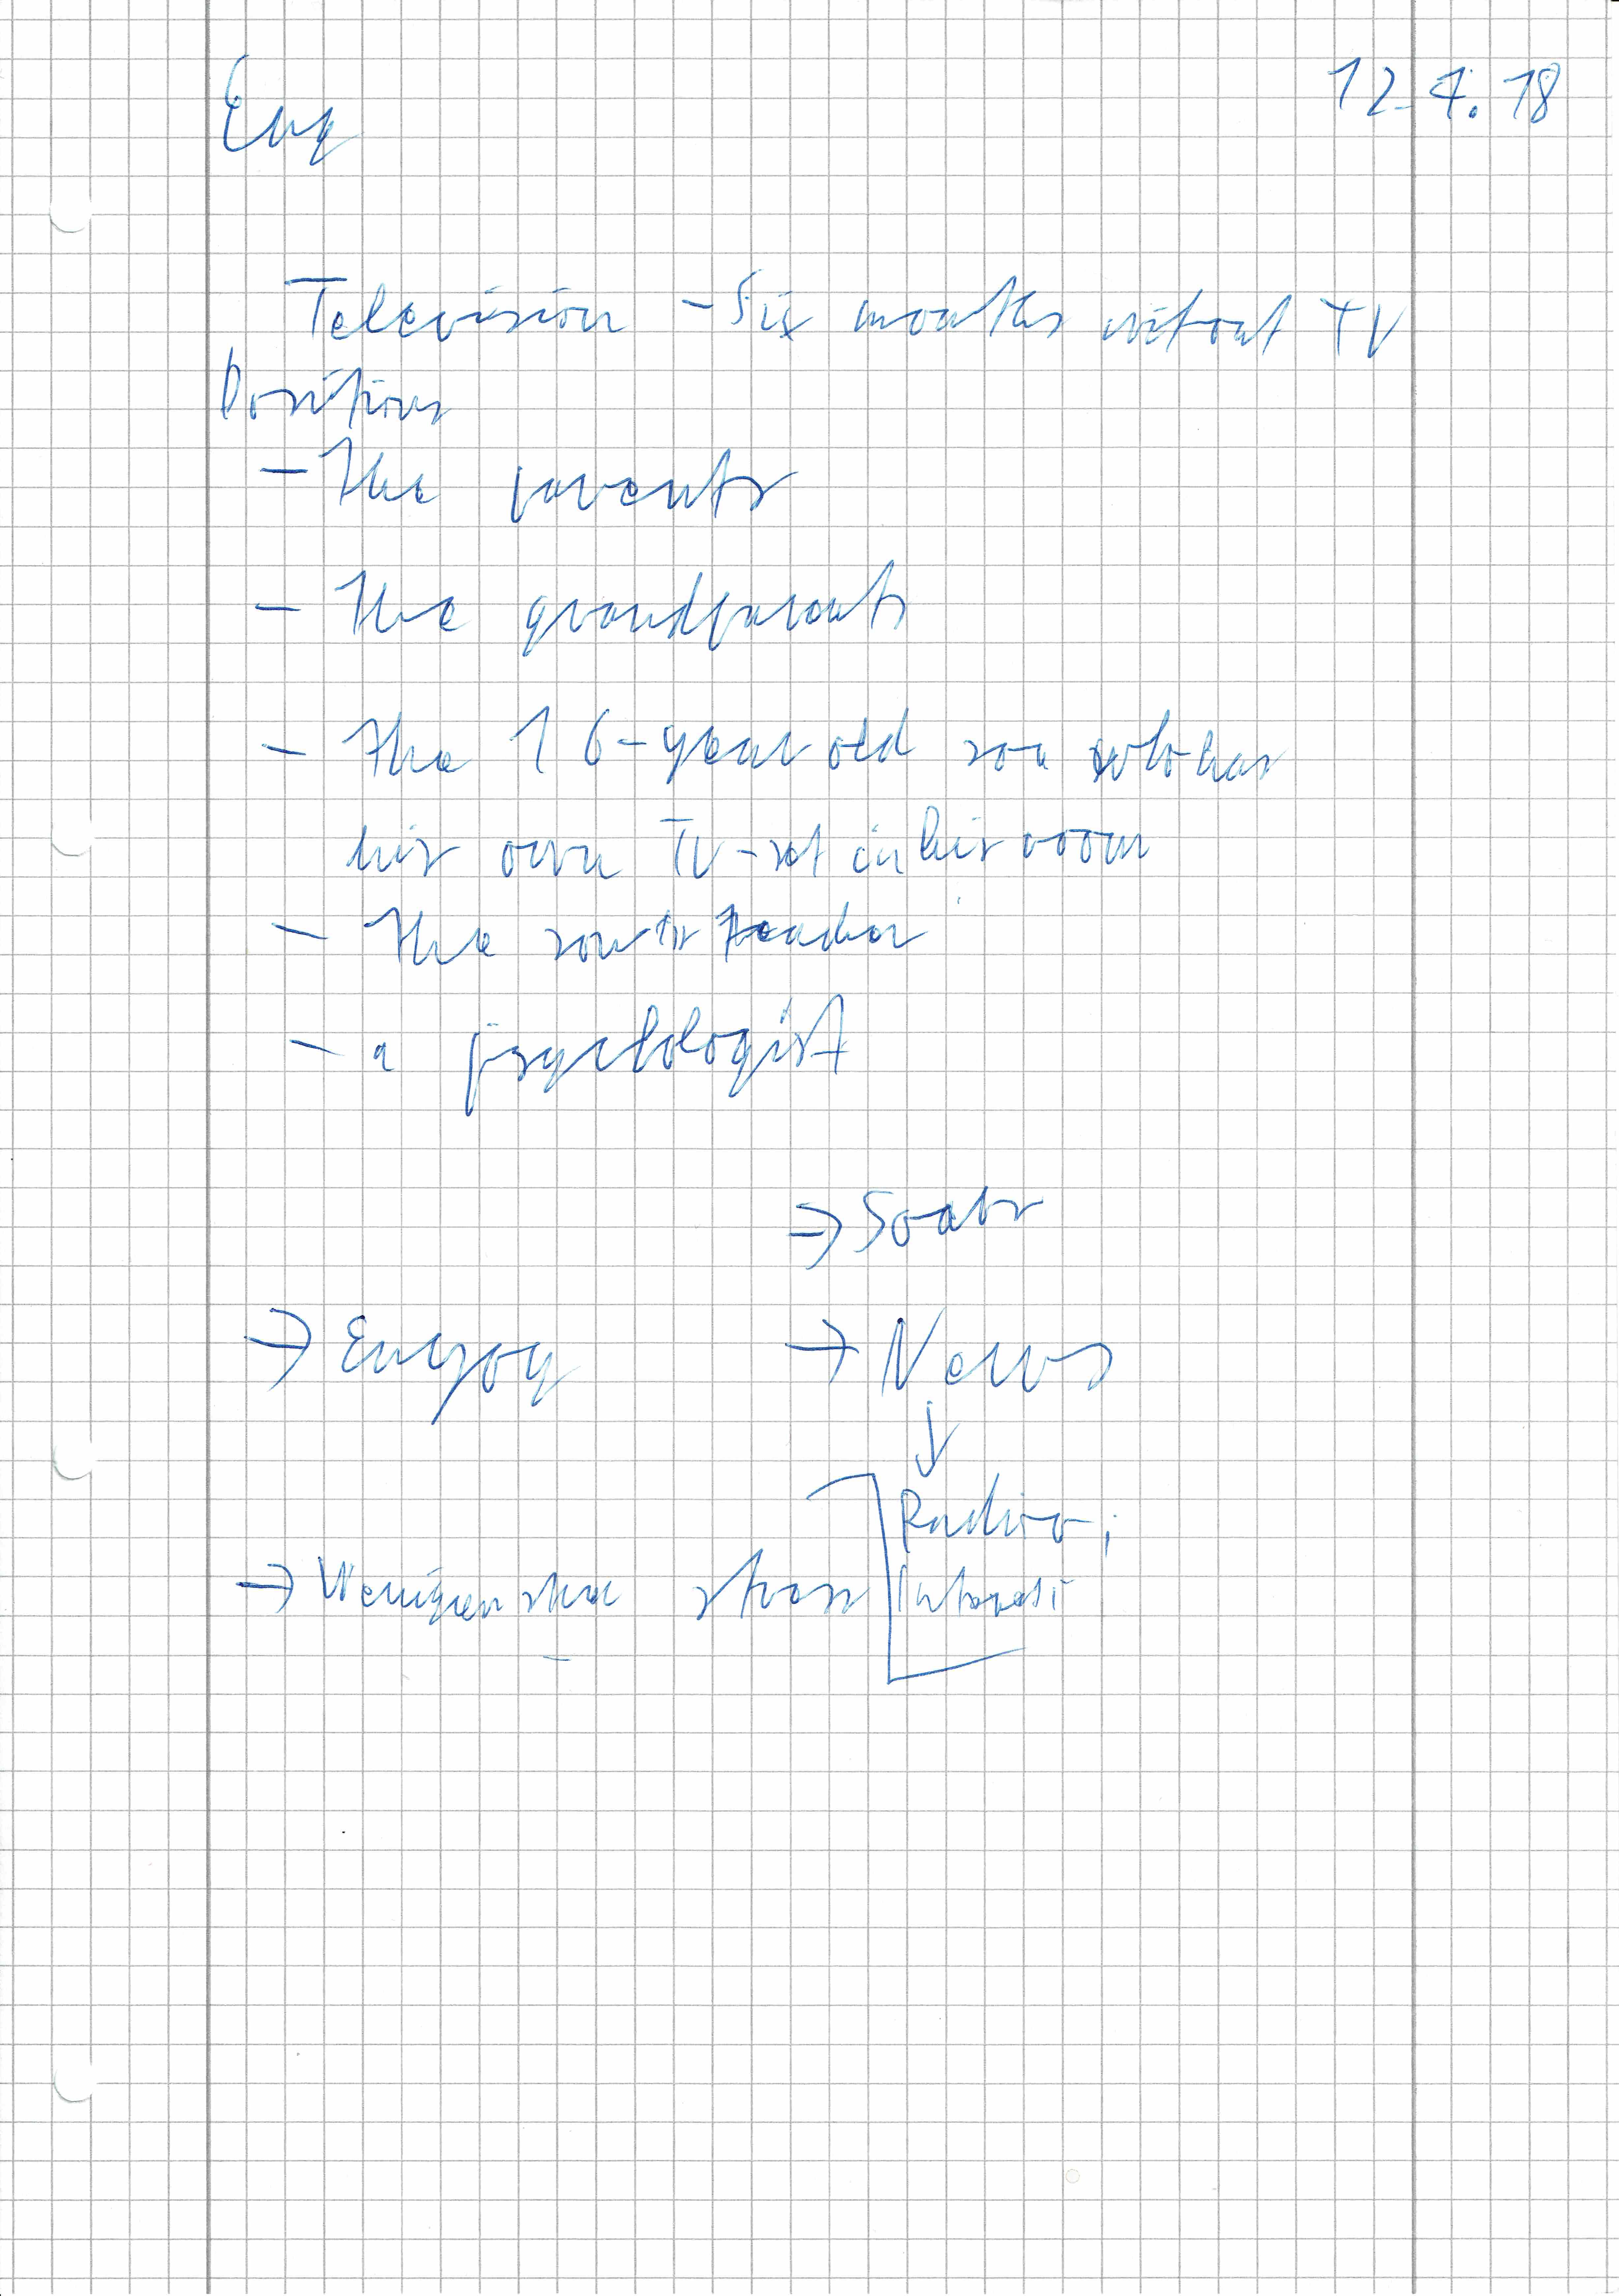 Eng 12.4.18
Television - Six months without TV
Positions
- The parents
- the grandparents
- the 16-year old son who has
his own TV-set in his room
- the son's teacher
- a psychologist
=>
-> Enyoy -> News
↓
Radio;
->